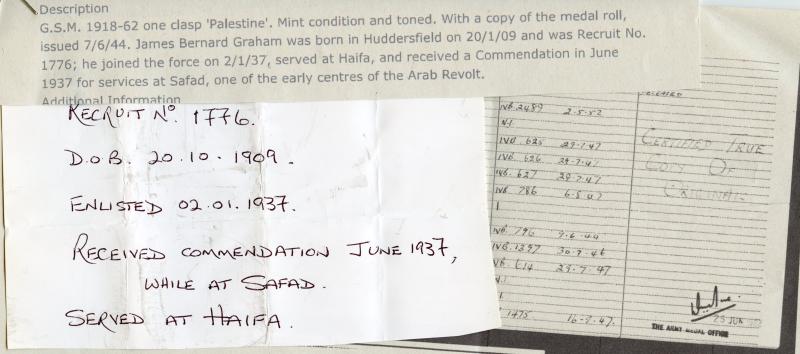 Description
G.S.M. 1918-62 one clasp 'Palestine'. Mint condition and toned. With a copy of the medal roll,
issued 7/6/44. James Bernard Graham was born in Huddersfield on 20/1/09 and was Recruit No.
1776; he joined the force on 2/1/37, served at Haifa, and received a Commendation in June
1937 for services at Safad, one of the early centres of the Arab Revolt.
Additional Information
RECRUIT No. 1776.
D.O.B. 20.10.1909.
ENLISTED 02.01.1937.
RECEIVED COMMENDATION JUNE 1937,
WHILE AT SAFAD.
SERVED AT HAIFA.
IVB.2489 2.5.52
N.I.
IVB. 625 29.7.47
IVB. 626 29.7.47
IVB. 627 29.7.47
IVB. 786
IVB. 796
IVB. 1397 30.9.46
IVB. 614 29.7.47
1475 16.7.47.
CERTIFIED TRUE
COPY OF
ORIGINAL
25 JUN
THE ARMY MEDAL OFFICE